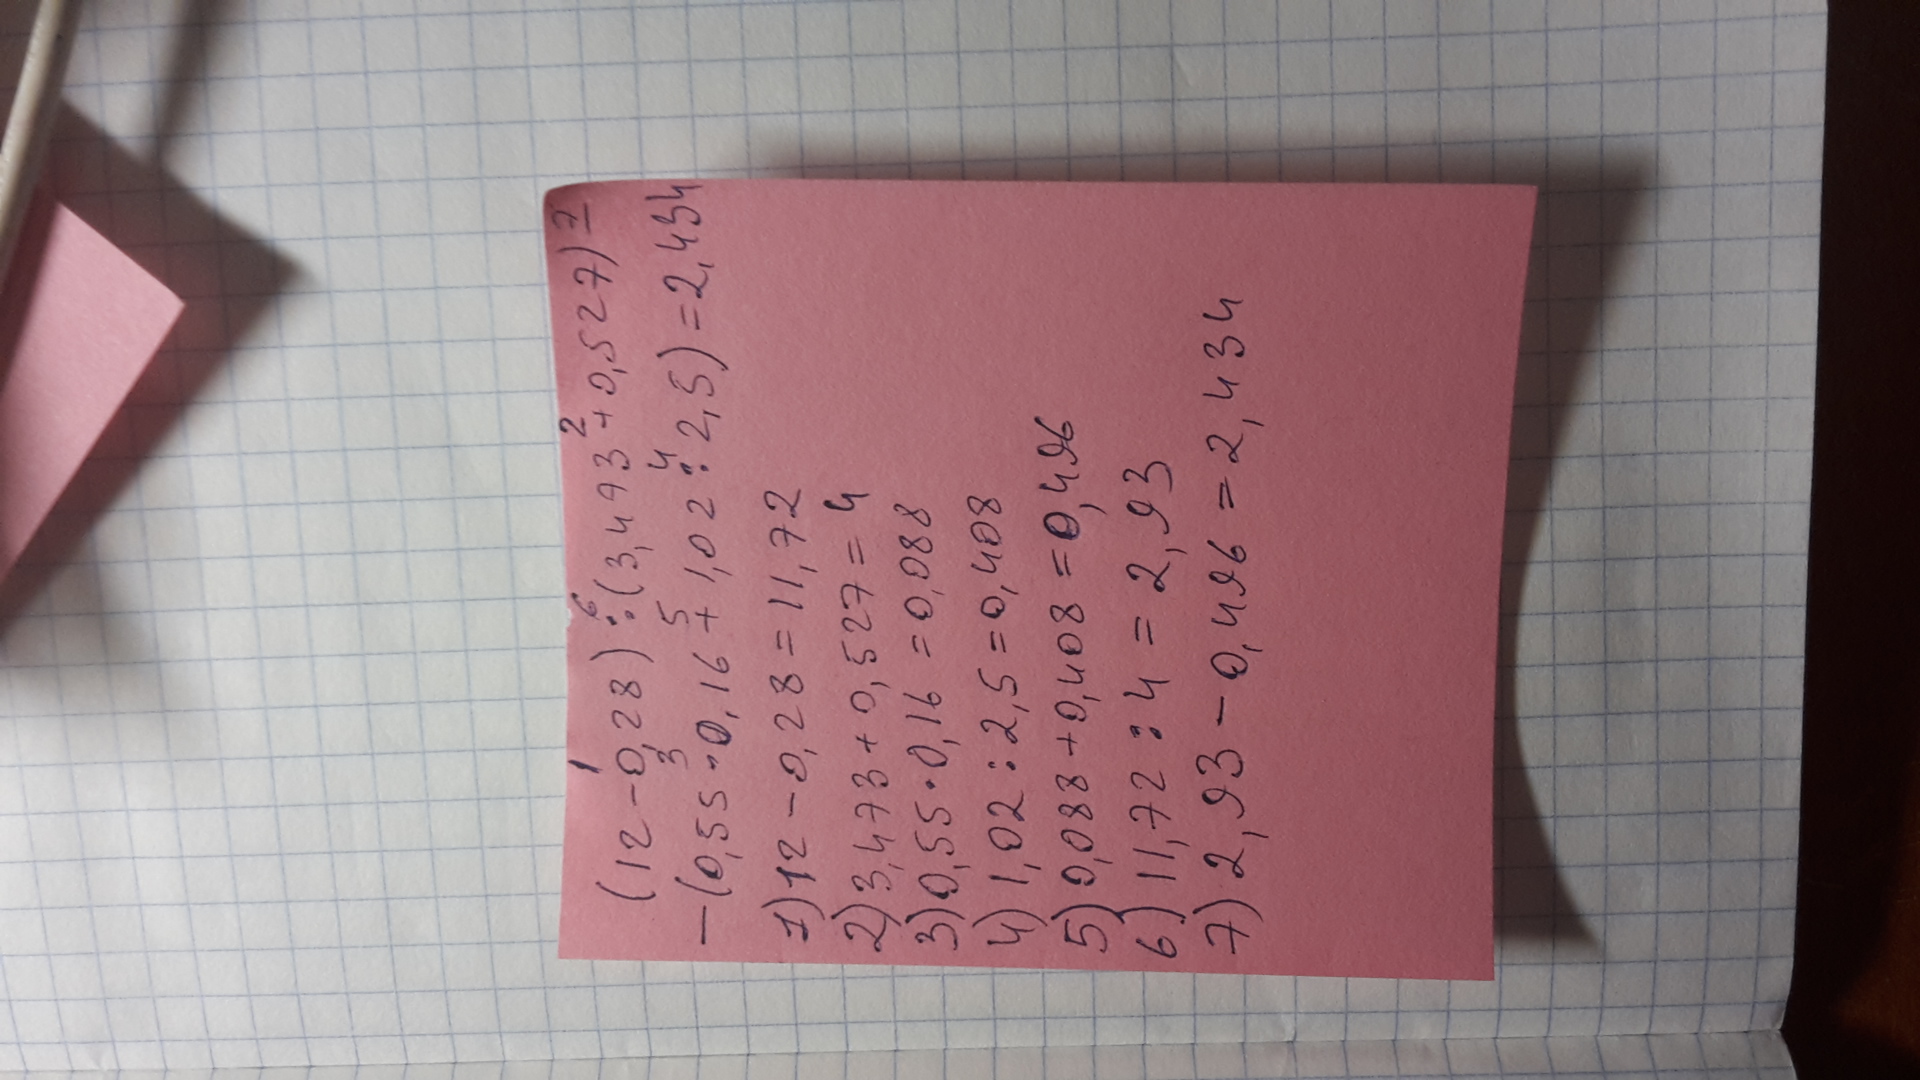 (12-0,28):(3,493+0,527)-
-(0,55·0,16+1,02:2,5)=2,434
1)12-0,28=11,72
2)3,473+0,527=4
3)0,55·0,16=0,088
4)1,02:2,5=0,408
5)0,088+0,408=0,496
6)11,72:4=2,93
7)2,93-0,496=2,434